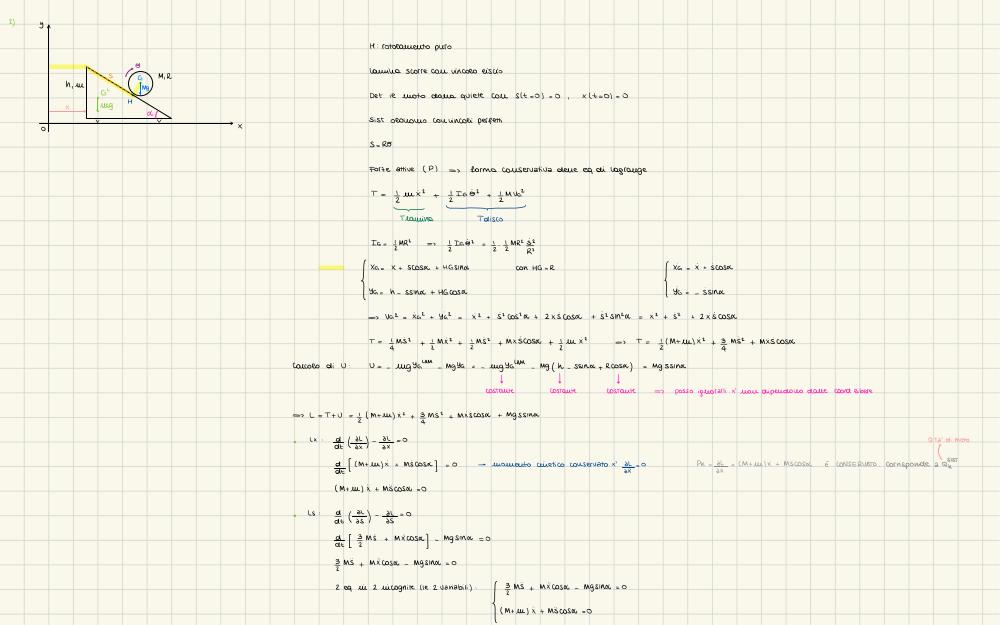 1)
y
θ
S
G
M,R
h, m
G'
Mg
mg
H
x
α
O
x
H: rotolamento puro
Lamina scorre con vincolo liscio
Det il moto dalla quiete con S(t=0)=0 , x(t=0)=0
Sist olonomo con vincoli perfetti
S=Rθ
Forze attive (P) => forma conservativa delle eq di Lagrange
T = 1/2 mẋ² + 1/2 I_G θ̇² + 1/2 M V_G²
T lamina T disco
I_G = 1/2 MR² => 1/2 I_G θ̇² = 1/2 1/2 MR² ṡ²/R²
{ x_G = x + s cosα + HG sinα con HG=R { ẋ_G = ẋ + ṡ cosα
y_G = h - s sinα + HG cosα ẏ_G = - ṡ sinα
=> V_G² = ẋ_G² + ẏ_G² = ẋ² + ṡ² cos²α + 2ẋṡ cosα + ṡ² sin²α = ẋ² + ṡ² + 2ẋṡ cosα
T = 1/4 Mṡ² + 1/2 Mẋ² + 1/2 Mṡ² + Mẋṡ cosα + 1/2 mẋ² => T = 1/2 (M+m)ẋ² + 3/4 Mṡ² + Mẋṡ cosα
Calcolo di U: U = - mg y_G^lam - Mg y_G = - mg y_G^lam - Mg (h - s sinα + R cosα) = Mg s sinα
costante costante costante => posso ignorarli x' non dipendono dalle coord libere
=> L = T+U = 1/2 (M+m)ẋ² + 3/4 Mṡ² + Mẋṡ cosα + Mg s sinα
Q.tà di moto
• Lx: d/dt (∂L/∂ẋ) - ∂L/∂x = 0
d/dt [(M+m)ẋ + Mṡ cosα] = 0 → momento cinetico conservato x' ∂L/∂x = 0 Px = ∂L/∂ẋ = (M+m)ẋ + Mṡ cosα È CONSERVATO corrisponde a Qx^SIST
(M+m)ẍ + Ms̈ cosα = 0
• Ls: d/dt (∂L/∂ṡ) - ∂L/∂s = 0
d/dt [3/2 Mṡ + Mẋ cosα] - Mg sinα = 0
3/2 Ms̈ + Mẍ cosα - Mg sinα = 0
2 eq in 2 incognite (le 2 variabili): { 3/2 Ms̈ + Mẍ cosα - Mg sinα = 0
(M+m)ẍ + Ms̈ cosα = 0